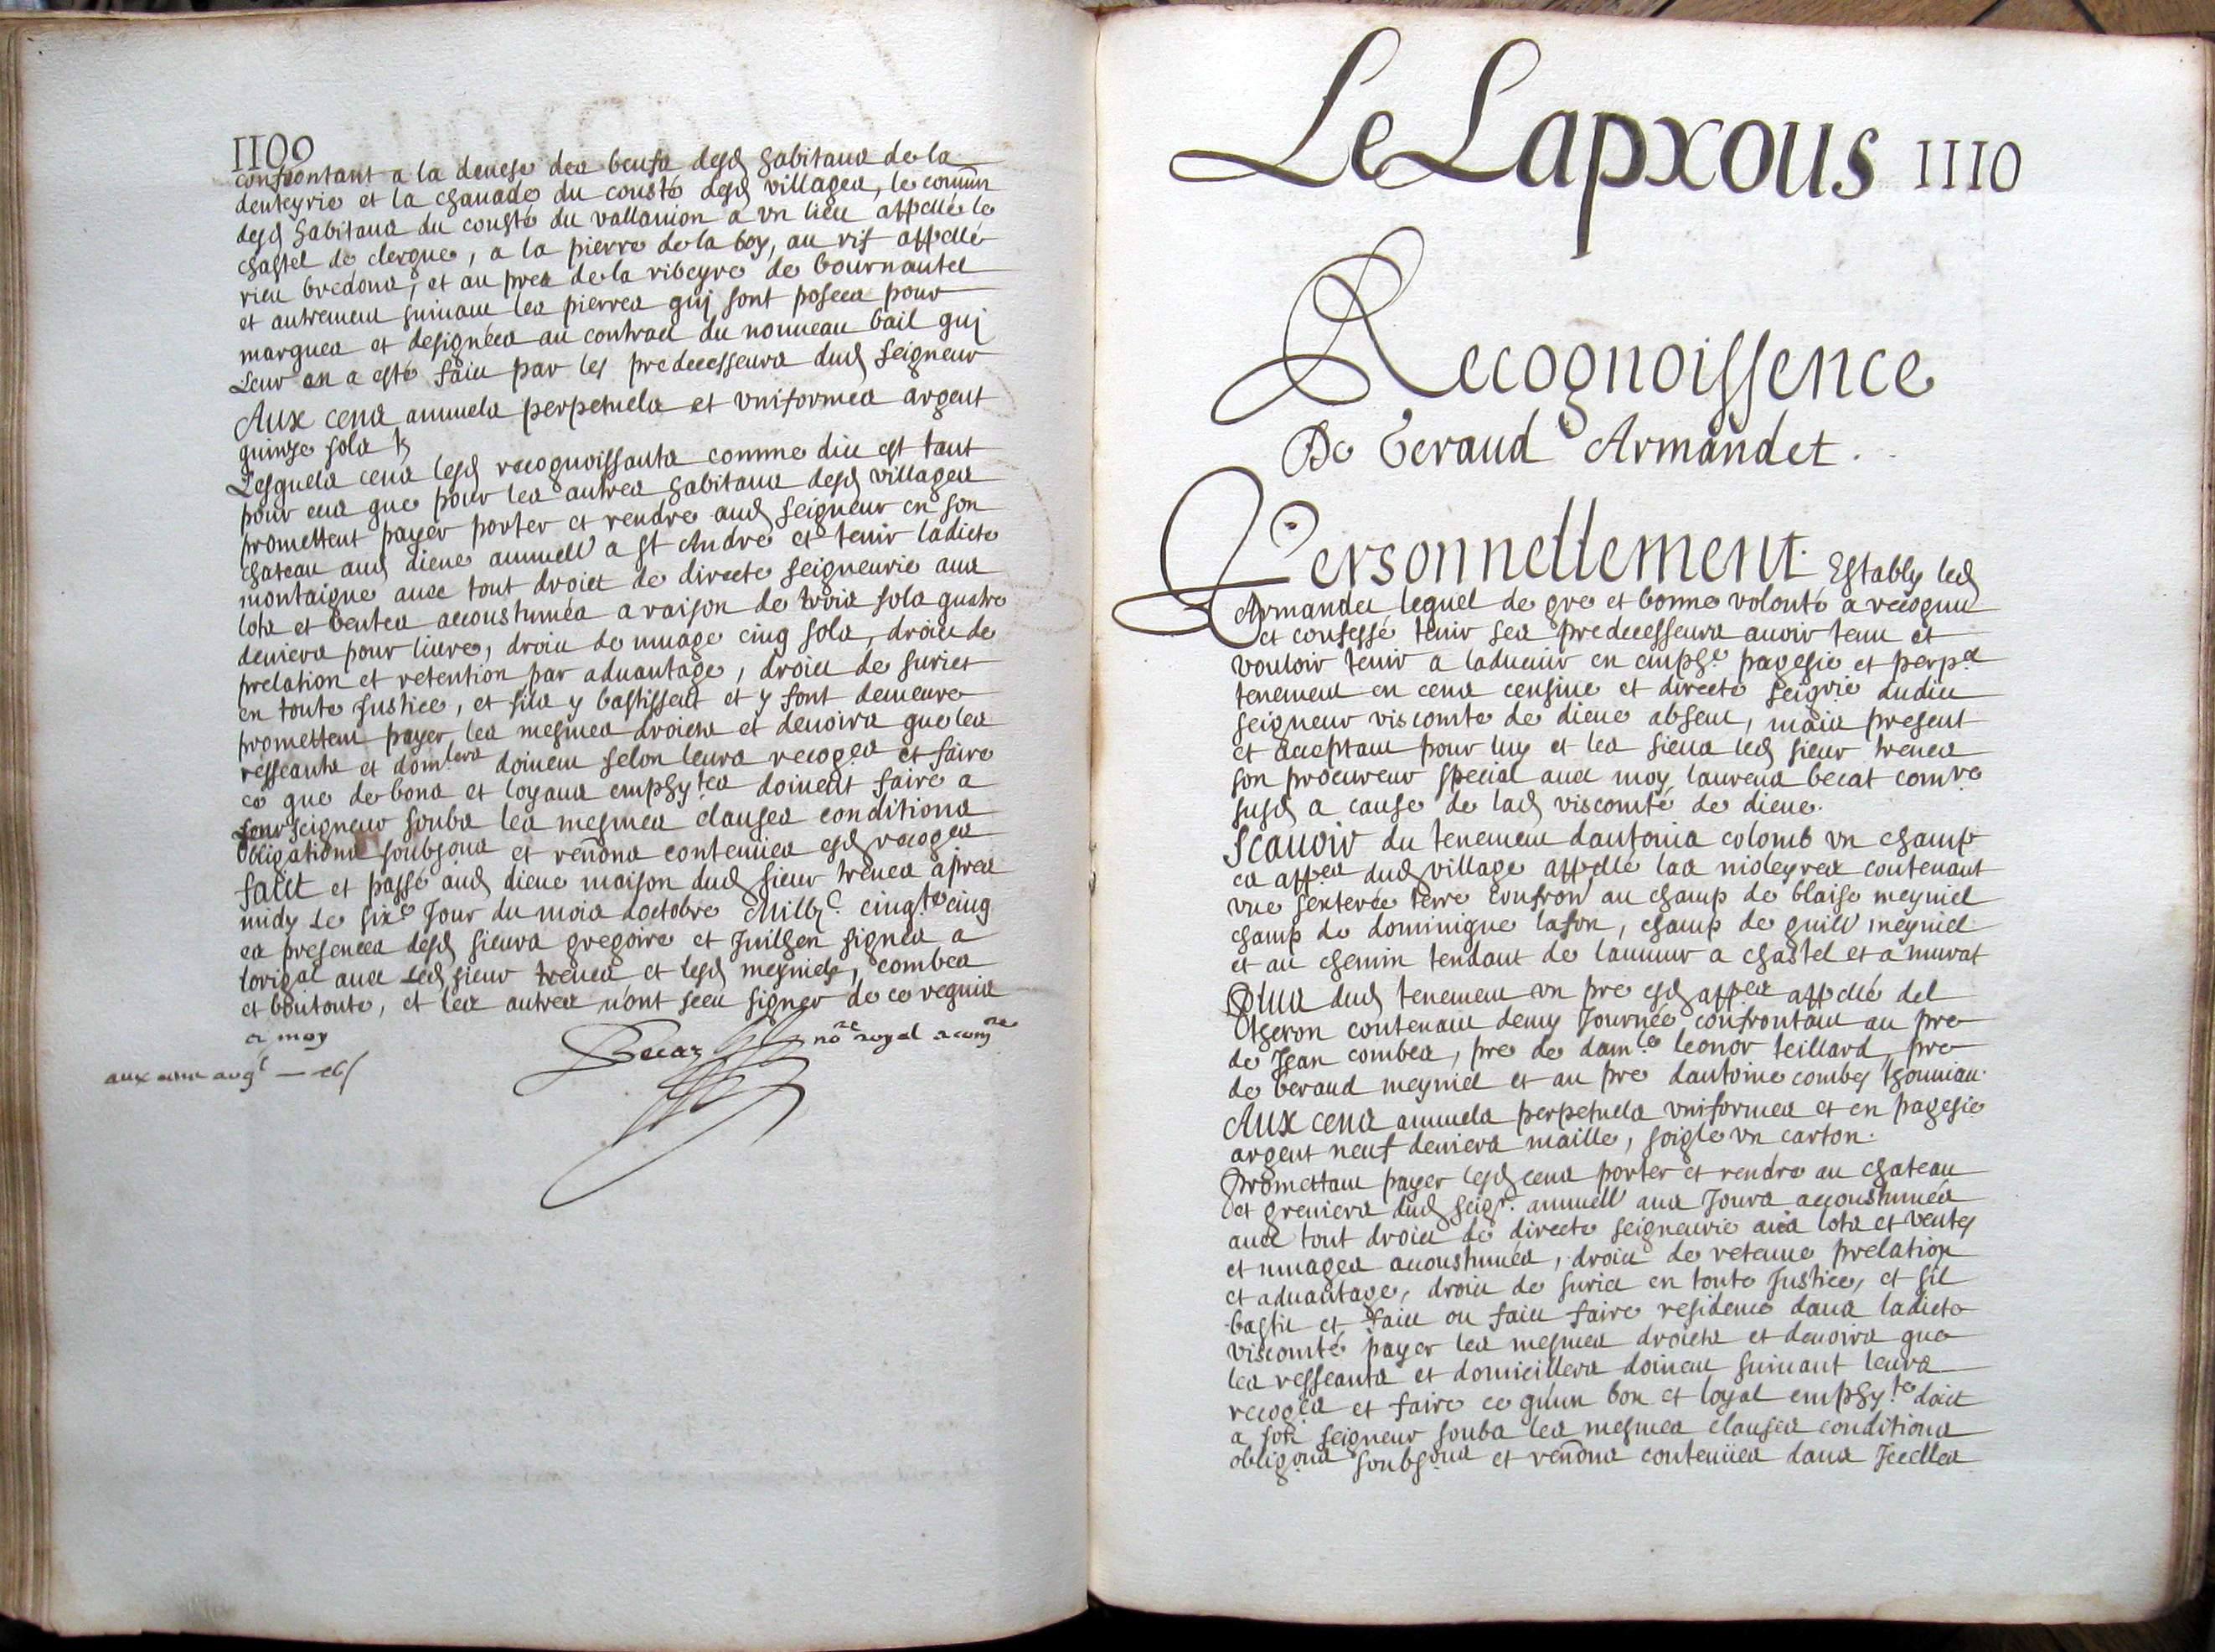 1109
confrontant a la devese des beufs desd habitans de la
denteyrie et la chanade du cousté desd villages, le comun
desd habitans du cousté du vallanion a un lieu appellé le
chastel de clergue, a la pierre de la boy, au rif appellé
rieu bredons, et au pres de la ribeyre de bournantel
et autrement suivant les pierres quj sont posees pour
marques et designées au contract du nouveau bail quj
Leur en a esté faict par les predecesseurs dud seigneur
Aux cens annuels perpetuels et uniformes argent
quinze sols
Lesquels cens lesd recognoissants comme dict est tant
pour eux que pour les autres habitans desd villages
promettent payer porter et rendre aud seigneur en son
chateau aud diene annuell a st André et tenir ladicte
montaigne avec tout droict de directe seigneurie aux
lots et ventes accoustumés a raison de trois sols quatre
deniers pour livre, droict de muage cinq sols, droict de
prelation et retention par advantage, droict de suriet
en toute Justice, et sils y bastissent et y font demeure
promettent payer les mesmes droicts et devoirs que les
resseants et domlers doivent selon leurs recoges et faire
ce que de bons et loyaux emphytes doivent faire a
Leur seigneur soubs les mesmes clauses conditions
obligations soubsons et renons contenues esd recoges
faict et passé aud diene maison dud sieur treves apres
midy Le sixe Jour du mois doctobre Mil vjc cinqte cinq
es presences desd sieurs gregoire et Juilhen signés a
lorigal avec Led sieur treves et lesd meyniels, combes
et boutonte, et les autres n'ont sceu signer de ce requis
et moy
Becat nore royal et comre
aux cens argt — xvs
Le Lapxous 1110
Recognoissence
De Geraud Armandet.
Personnellement Estably led
Armandet lequel de gre et bonne volonté a recognu
et confessé tenir ses predecesseurs avoir tenu et
vouloir tenir a ladvenir en emphe pagesie et perpel
tenement en cens censive et directe seigrie dudict
seigneur viscomte de diene absent, mais present
et acceptant pour luy et les siens led sieur treves
son procureur special avec moy laurens becat comre
susd a cause de lad viscomté de diene.
Scavoir du tenement dantonia colomb un champ
es appes dud village appellé las nioleyres contenant
une sexterée terre confron au champ de blaise meyniel
champ de dominique lafon, champ de guill meyniel
et au chemin tendant de laumur a chastel et a murat
Plus dud tenement un pre esd appes appellé del
Otheron contenant demy Journée confrontant au pre
de Jean combes, pre de damle leonor teillard, pre
de beraud meyniel et au pre dantoine combes thounian.
Aux cens annuels perpetuels uniformes et en pagesie
argent neuf deniers maille, soigle un carton.
Promettant payer lesd cens porter et rendre au chateau
et greniers dud seigr. annuell aux Jours accoustumés
avec tout droict de directe seigneurie aux lots et ventes
et muages accoustumés, droict de retenue prelation
et advantage, droict de suriet en toute Justice, et sil
bastit et faict ou faict faire residence dans ladicte
viscomté payer les mesmes droicts et devoirs que
les resseants et domicillers doivent suivant leurs
recoges et faire ce quun bon et loyal emphyte doit
a son seigneur soubs les mesmes clauses conditions
obligons soubsons et renons contenues dans Jcelles